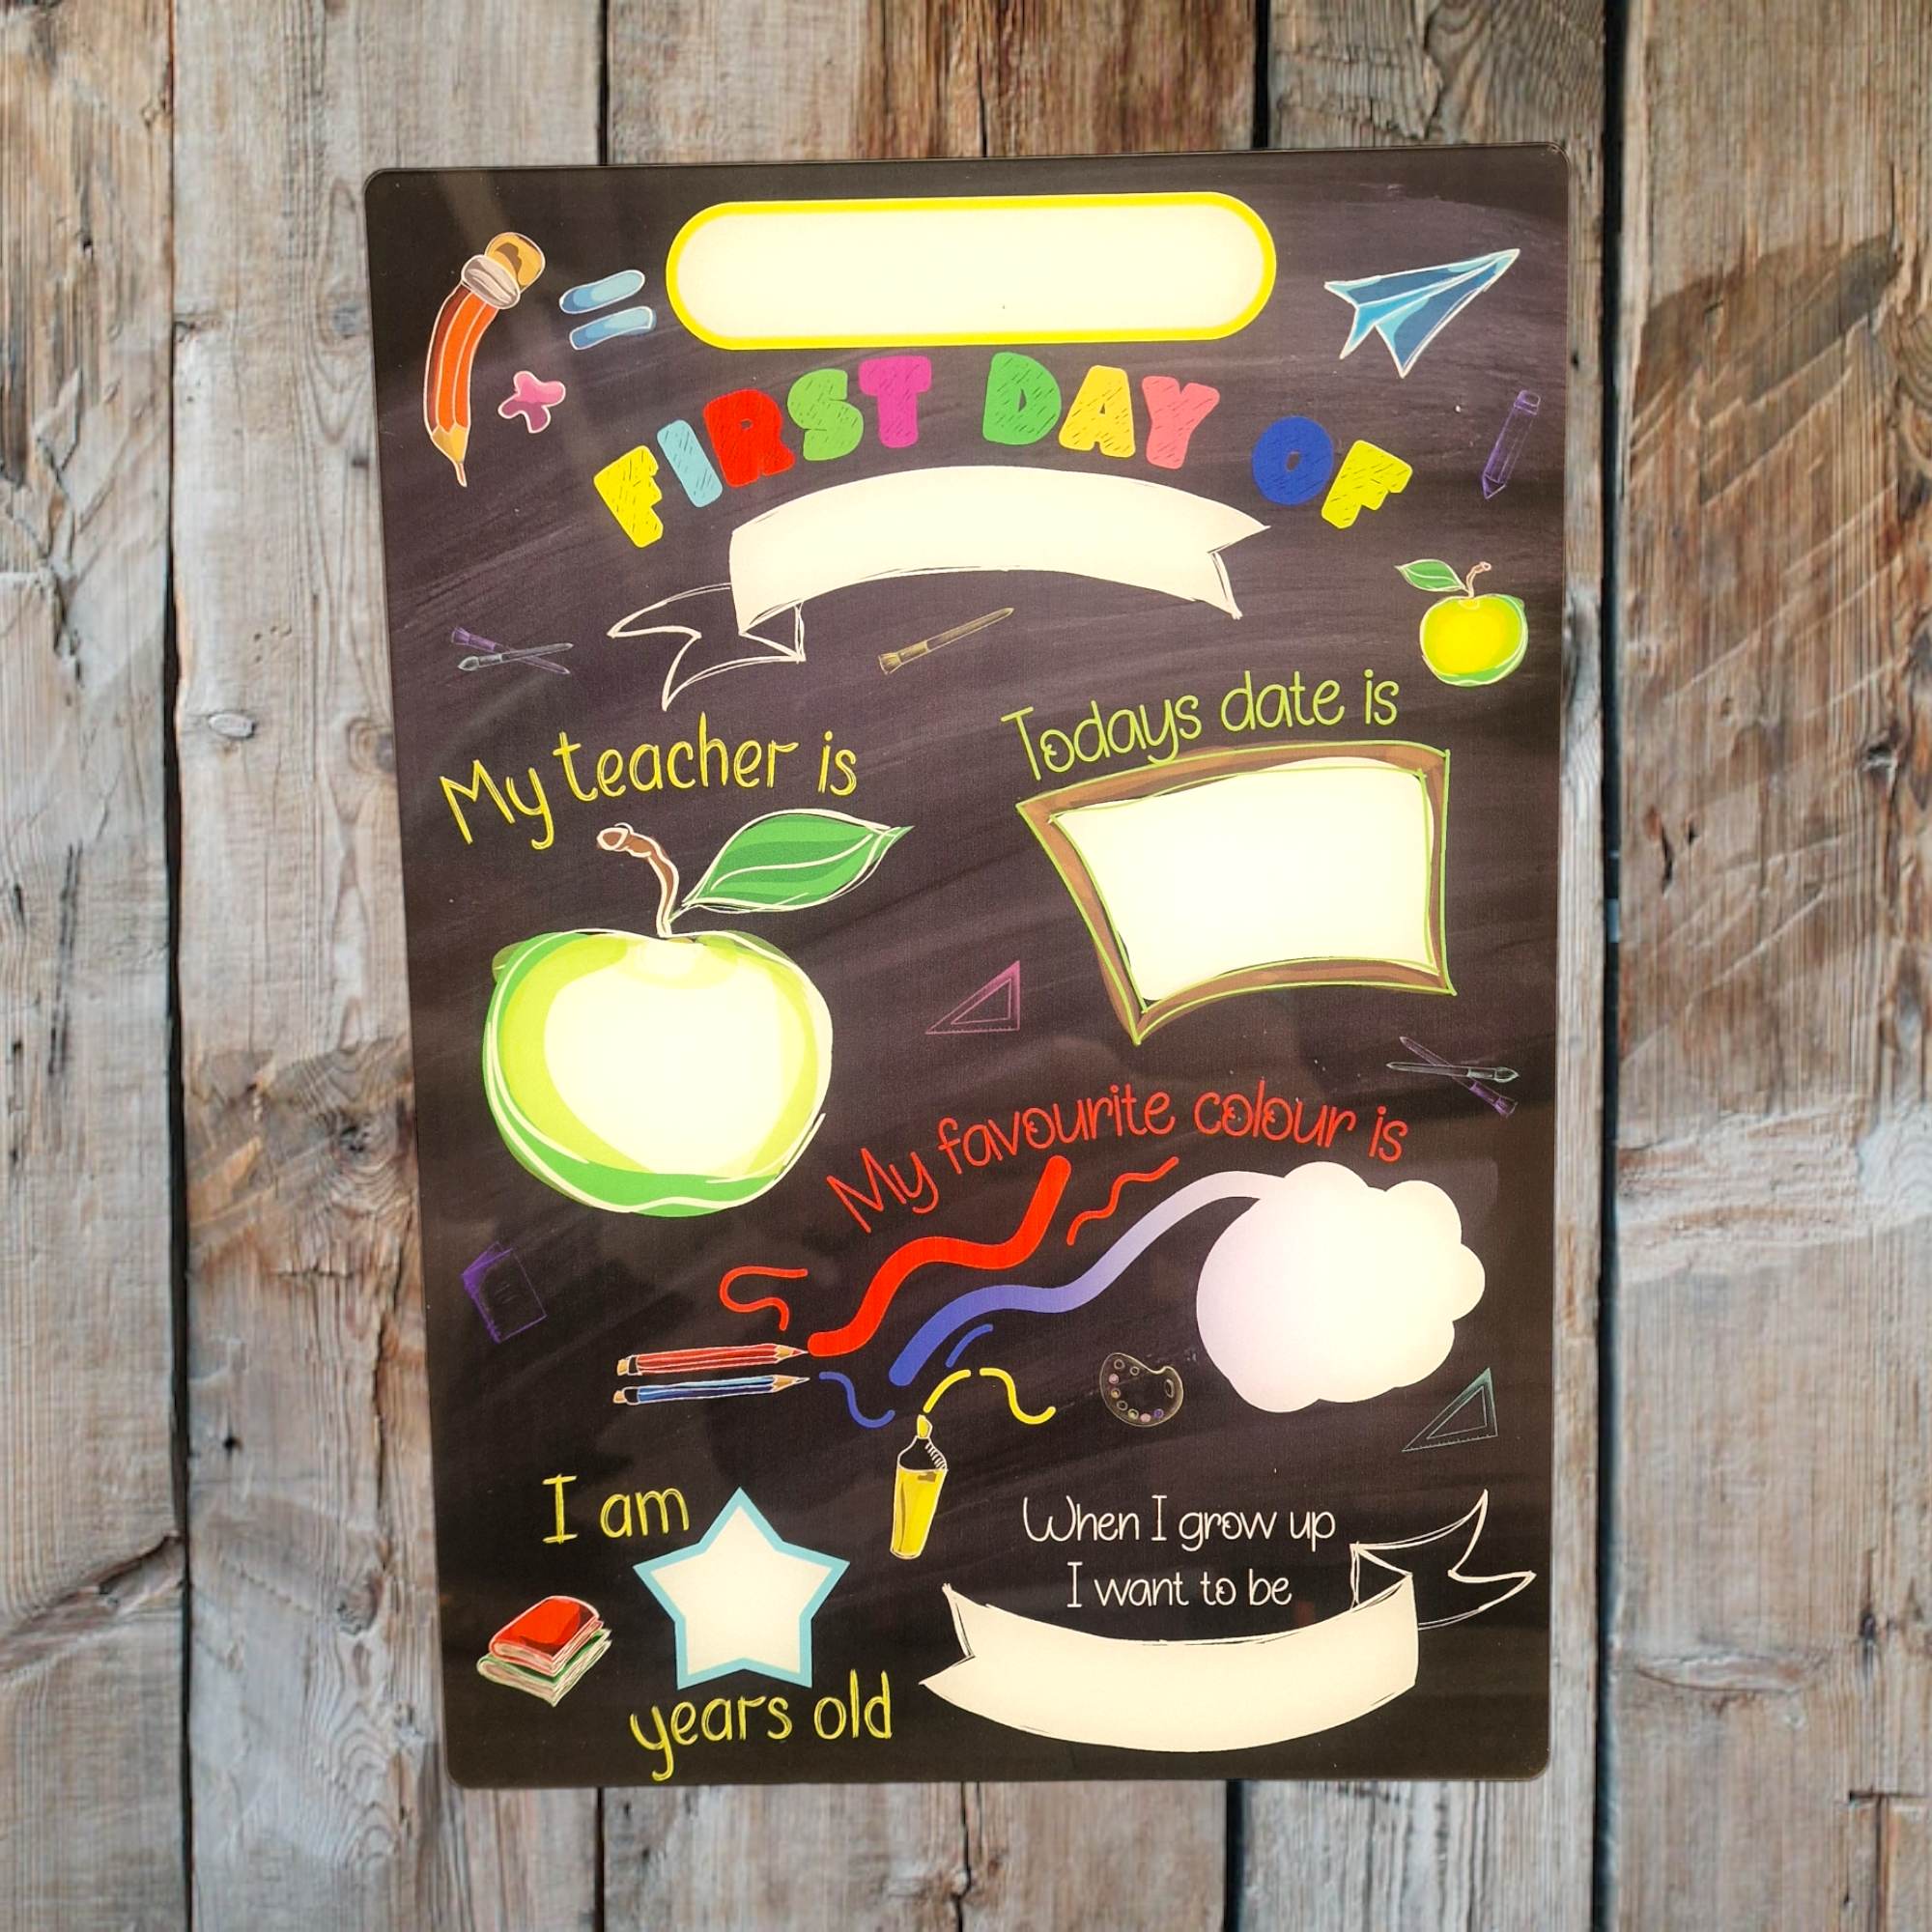 FIRST DAY OF
My teacher is
Todays date is
My favourite colour is
I am
years old
When I grow up
I want to be